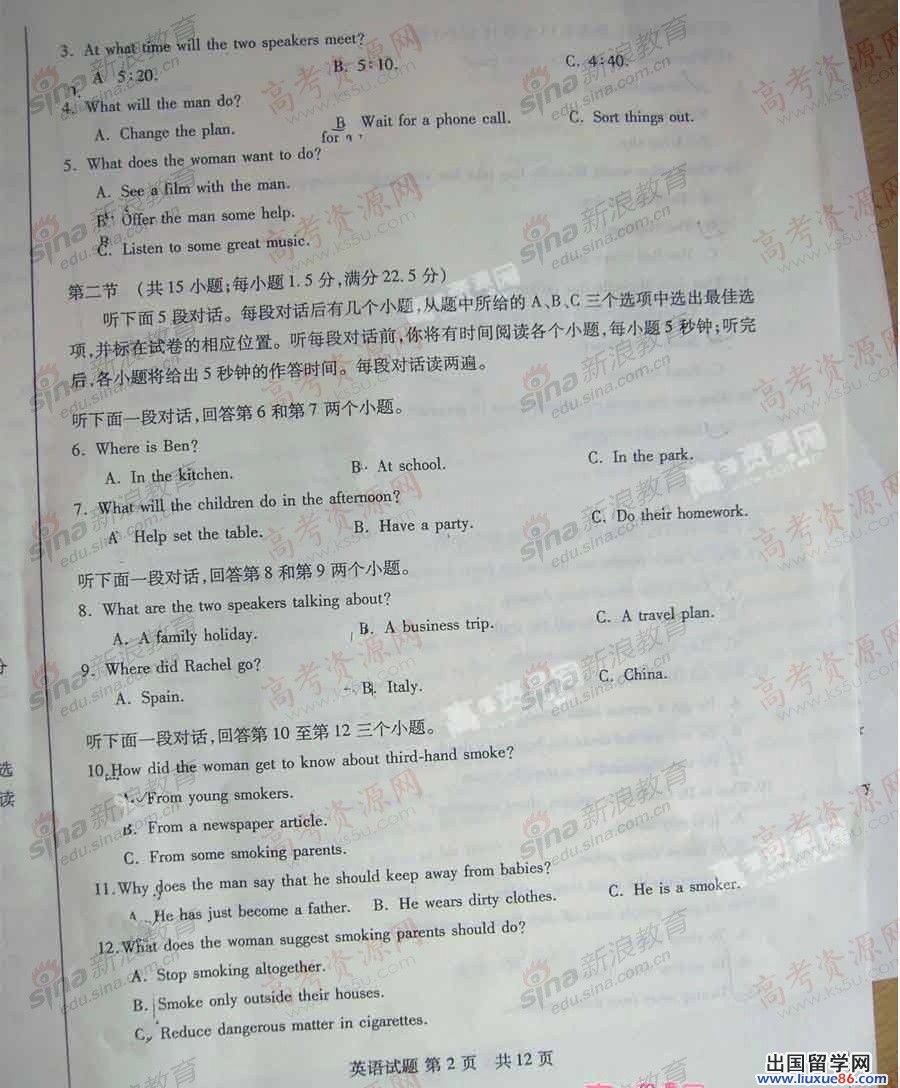 3. At what time will the two speakers meet?
A 5:20. B. 5:10. C. 4:40.
4. What will the man do?
A. Change the plan. B Wait for a phone call. C. Sort things out.
for
5. What does the woman want to do?
A. See a film with the man.
B. Offer the man some help.
C. Listen to some great music.
第二节 (共 15 小题;每小题 1.5 分,满分 22.5 分)
听下面 5 段对话。每段对话后有几个小题,从题中所给的 A、B、C 三个选项中选出最佳选
项,并标在试卷的相应位置。听每段对话前,你将有时间阅读各个小题,每小题 5 秒钟;听完
后,各小题将给出 5 秒钟的作答时间。每段对话读两遍。
听下面一段对话,回答第 6 和第 7 两个小题。
6. Where is Ben?
A. In the kitchen. B. At school. C. In the park.
7. What will the children do in the afternoon?
A Help set the table. B. Have a party. C. Do their homework.
听下面一段对话,回答第 8 和第 9 两个小题。
8. What are the two speakers talking about?
A. A family holiday. B. A business trip. C. A travel plan.
9. Where did Rachel go?
A. Spain. B. Italy. C. China.
听下面一段对话,回答第 10 至第 12 三个小题。
10. How did the woman get to know about third-hand smoke?
A. From young smokers.
B. From a newspaper article.
C. From some smoking parents.
11. Why does the man say that he should keep away from babies?
A. He has just become a father. B. He wears dirty clothes. C. He is a smoker.
12. What does the woman suggest smoking parents should do?
A. Stop smoking altogether.
B. Smoke only outside their houses.
C. Reduce dangerous matter in cigarettes.
英语试题 第 2 页 共 12 页
选
读
y
sina 新浪教育
edu.sina.com.cn
高考资源网
www.ks5u.com
出国留学网
www.liuxue86.com